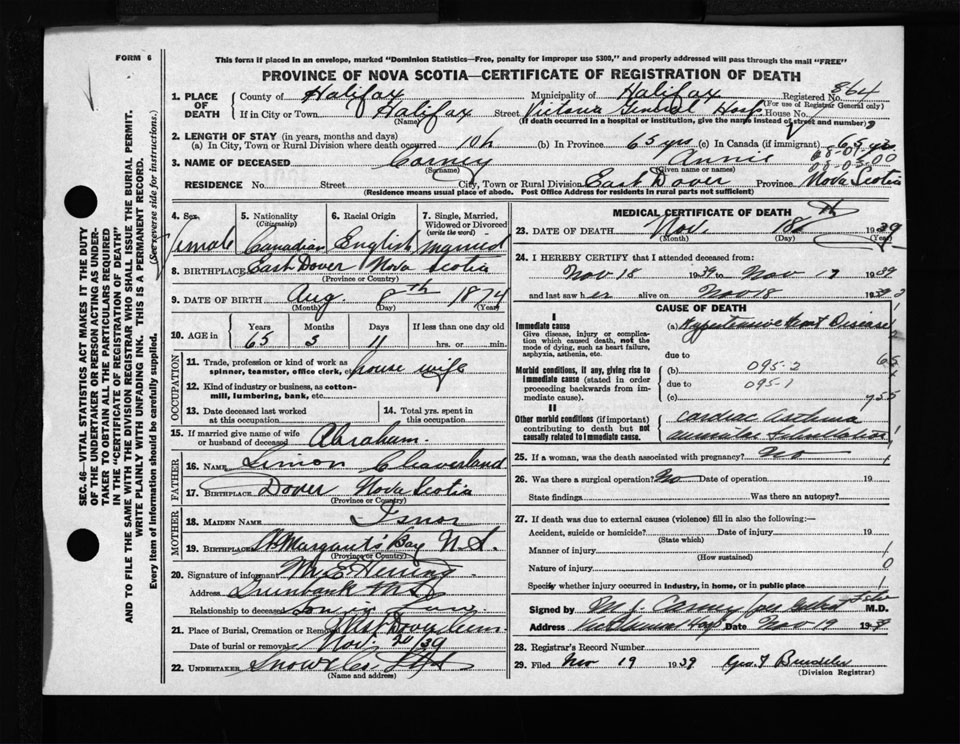 FORM 6
This form if placed in an envelope, marked "Dominion Statistics—Free, penalty for improper use $300," and properly addressed will pass through the mail "FREE"
PROVINCE OF NOVA SCOTIA—CERTIFICATE OF REGISTRATION OF DEATH
1. PLACE OF DEATH
County of Halifax Municipality of Halifax Registered No. 864
(For use of Registrar General only)
If in City or Town Halifax Street Victoria General Hosp House No.
(Name) (If death occurred in a hospital or institution, give the name instead of street and number)
2. LENGTH OF STAY (in years, months and days)
(a) In City, Town or Rural Division where death occurred 10 h (b) In Province 65 yrs (c) In Canada (if immigrant)
3. NAME OF DECEASED Carney Annie
(Surname) (Given name or names)
RESIDENCE No. Street City, Town or Rural Division East Dover Province Nova Scotia
(Residence means usual place of abode. Post Office Address for residents in rural parts not sufficient)
4. Sex Female
5. Nationality (Citizenship) Canadian
6. Racial Origin English
7. Single, Married, Widowed or Divorced (write the word) Married
8. BIRTHPLACE East Dover Nova Scotia
(Province or Country)
9. DATE OF BIRTH Aug. 8th 1874
(Month) (Day) (Year)
10. AGE in Years Months Days If less than one day old
65 3 11 hrs. or min.
OCCUPATION
11. Trade, profession or kind of work as spinner, teamster, office clerk, etc. house wife
12. Kind of industry or business, as cotton-mill, lumbering, bank, etc.
13. Date deceased last worked at this occupation
14. Total yrs. spent in this occupation
15. If married give name of wife or husband of deceased Abraham.
FATHER
16. NAME Simon
17. Birthplace Dover Nova Scotia
(Province or Country)
MOTHER
18. MAIDEN NAME Isnor
19. Birthplace St Margaret's Bay N.S.
(Province or Country)
20. Signature of informant
Address
Relationship to deceased Son in Law.
21. Place of Burial, Cremation or Removal West Dover Cem
Date of burial or removal Nov. 20/39
22. UNDERTAKER Snow & Co Ltd
(Name and address)
MEDICAL CERTIFICATE OF DEATH
23. DATE OF DEATH Nov. 18th 1939
(Month) (Day) (Year)
24. I HEREBY CERTIFY that I attended deceased from:
Nov 18 1939 to Nov 19 1939
and last saw her alive on Nov 18 1939
CAUSE OF DEATH
I
Immediate cause
Give disease, injury or complication which caused death, not the mode of dying, such as heart failure, asphyxia, asthenia, etc.
(a) Hypertensive Heart Disease
due to
Morbid conditions, if any, giving rise to immediate cause (stated in order proceeding backwards from immediate cause).
(b) 095-2
due to 095-1
(c)
II
Other morbid conditions (if important) contributing to death but not causally related to immediate cause.
Cardiac Asthma
Auricular Fibrillation
25. If a woman, was the death associated with pregnancy? No
26. Was there a surgical operation? No Date of operation 19
State findings Was there an autopsy?
27. If death was due to external causes (violence) fill in also the following:
Accident, suicide or homicide? Date of injury 19
(State which)
Manner of injury
(How sustained)
Nature of injury
Specify whether injury occurred in industry, in home, or in public place
Signed by M.D.
Address Victoria Gen Hosp Date Nov 19 1939
28. Registrar's Record Number
29. Filed Nov 19 1939
(Division Registrar)
SEC. 46—VITAL STATISTICS ACT MAKES IT THE DUTY
OF THE UNDERTAKER OR PERSON ACTING AS UNDER-
TAKER TO OBTAIN ALL THE PARTICULARS REQUIRED
IN THE "CERTIFICATE OF REGISTRATION OF DEATH"
AND TO FILE THE SAME WITH THE DIVISION REGISTRAR WHO SHALL ISSUE THE BURIAL PERMIT.
WRITE PLAINLY WITH UNFADING INK. THIS IS A PERMANENT RECORD.
Every item of information should be carefully supplied. (See reverse side for instructions.)